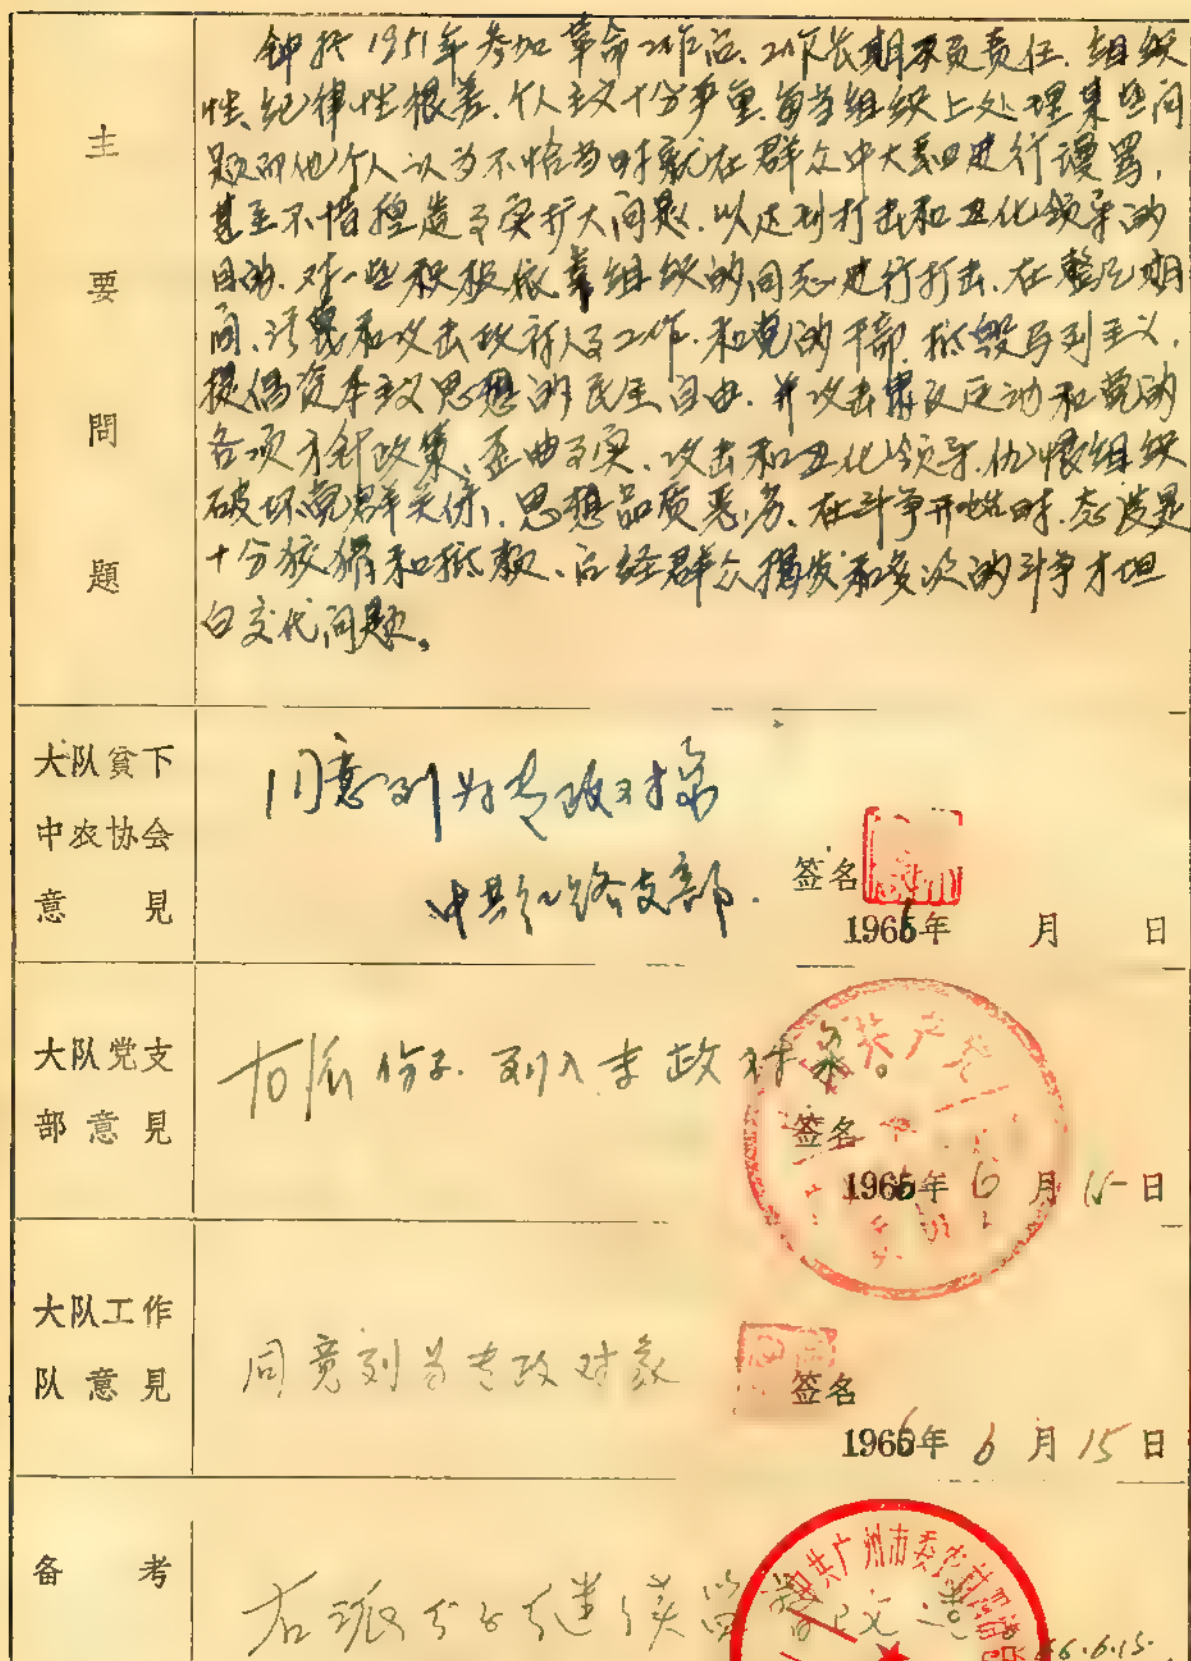 主要問題
钟於1951年参加革命工作后、工作长期不负责任、组织
性、纪律性很差、个人主义十分严重、每当组织上处理某些问
题而他个人认为不恰当时就在群众中大肆进行谩骂,
甚至不惜捏造事实扩大问题、以达到打击和丑化领导的
目的、对一些积极依靠组织的同志进行打击、在整风期
间、污蔑和攻击政府人事工作、和党的干部、抵毁马列主义,
提倡资本主义思想的民主自由、并攻击肃反运动和党的
各项方針政策、歪曲事实、攻击和丑化领导、仇恨组织
破坏党群关係、思想品质恶劣、在斗争开始时、态度是
十分狡猾和抵赖、后经群众揭发和多次的斗争才坦
白交代问题。
大队貧下
中农协会
意見
同意列为专政对象
中共红路支部.
签名
1966年 月 日
大队党支
部意見
右派份子.列入专政对象。
签名
1966年6月15日
大队工作
队意見
同意列为专政对象
签名
1966年6月15日
备考
右派分子继续监督改造。
中共广州市委农村
66.6.15.